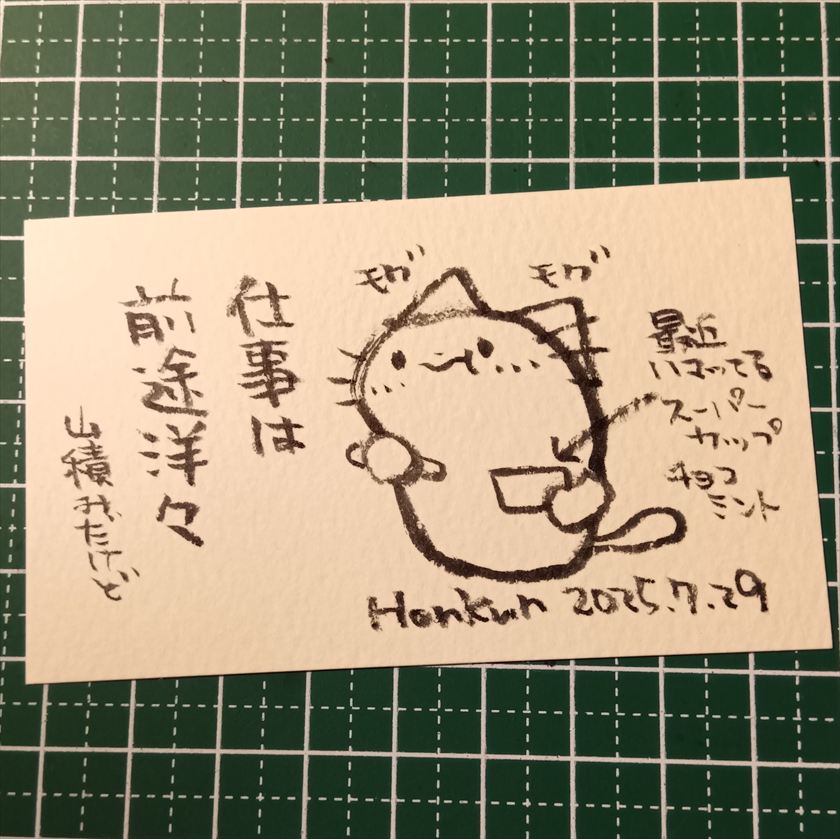 モグ
モグ
最近
ハマってる
スーパー
カップ
チョコ
ミント
仕事は
前途洋々
山積みだけど
Honkun 2025.7.29